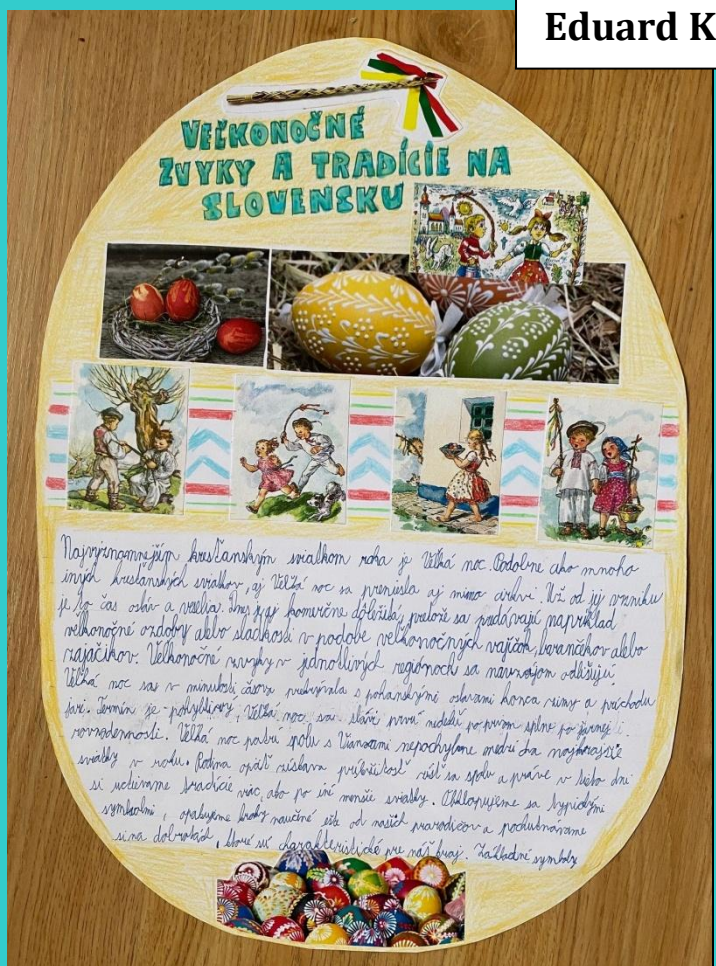 Eduard K
VEĽKONOČNÉ
ZVYKY A TRADÍCIE NA
SLOVENSKU
Najvýznamnejším kresťanským sviatkom roka je Veľká noc. Podobne ako mnoho
iných kresťanských sviatkov, aj Veľká noc sa preniesla aj mimo cirkvi. Už od jej vzniku
je to čas osláv a veselia. Dnes je aj komerčne dôležitá, pretože sa predávajú napríklad
veľkonočné ozdoby alebo sladkosti v podobe veľkonočných vajíčok, barančekov alebo
zajačikov. Veľkonočné zvyky v jednotlivých regiónoch sa navzájom odlišujú.
Veľká noc sa v minulosti časovo prekrývala s pohanskými oslavami konca zimy a príchodu
jari. Termín je pohyblivý, Veľká noc sa slávi prvú nedeľu po prvom splne po jarnej
rovnodennosti. Veľká noc patrí spolu s Vianocami nepochybne medzi tie najkrajšie
sviatky v roku. Rodina opäť získava príležitosť zísť sa spolu a práve v tieto dni
si uctievame tradície viac, ako po iné menšie sviatky. Obklopujeme sa typickými
symbolmi, opakujeme kroky naučené ešte od našich prarodičov a pochutnávame
si na dobrotách, ktoré sú charakteristické pre náš kraj. Základné symboly